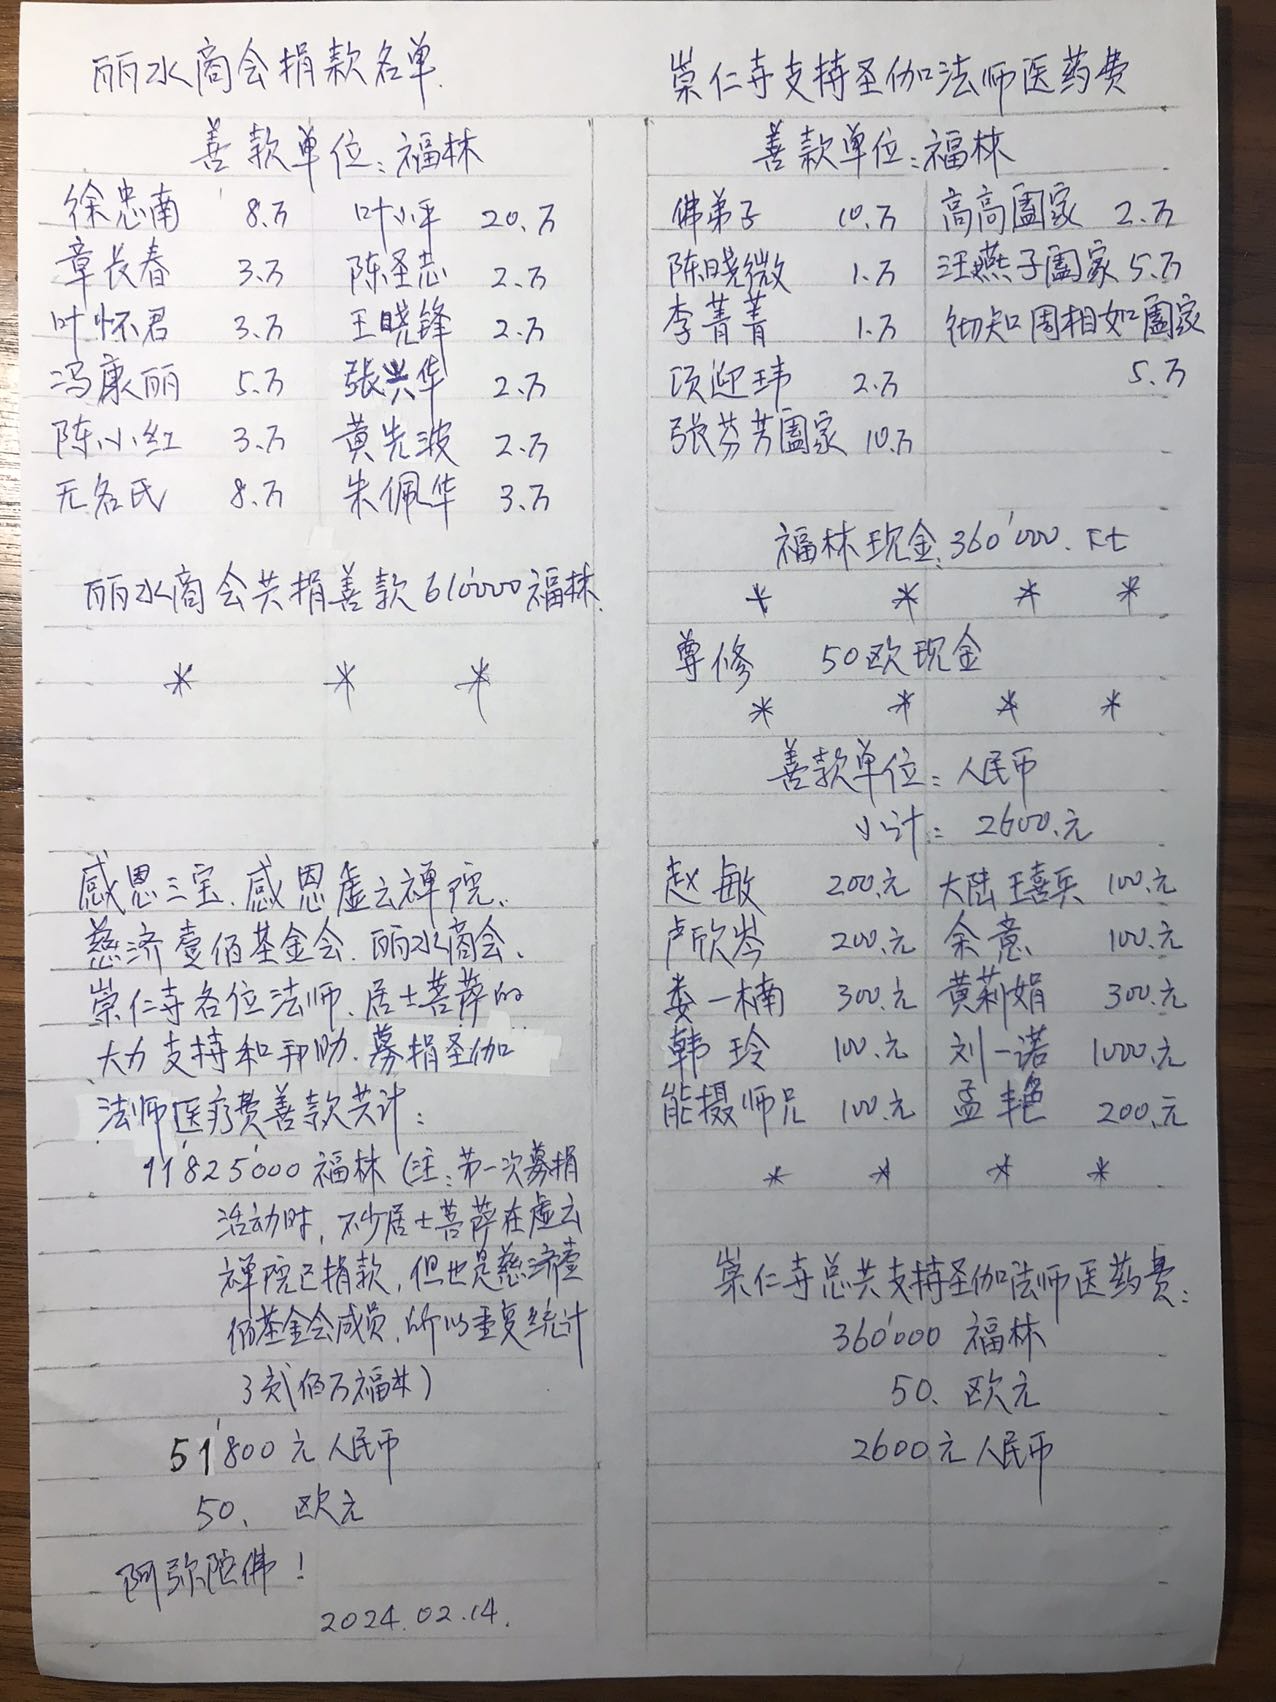 丽水商会捐款名单.
善款单位:福林
徐忠南 8.万 叶小平 20.万
章长春 3.万 陈圣芯 2.万
叶怀君 3.万 王晓锋 2.万
冯康丽 5.万 張兴华 2.万
陈小红 3.万 黄先波 2.万
无名氏 8.万 朱佩华 3.万
丽水商会共捐善款610'000福林.
* * *
感恩三宝.感恩虚云禅院、
慈济壹佰基金会.丽水商会、
崇仁寺各位法师.居士菩萨的
大力支持和邦助.募捐圣伽
法师医疗费善款共计:
11'825'000福林(注:第一次募捐
活动时,不少居士菩萨在虚云
禅院已捐款,但也是慈济壹
佰基金会成员,所以重复统计
了贰佰万福林)
51'800元人民币
50. 欧元
阿弥陀佛!
2024.02.14.
崇仁寺支持圣伽法师医药费
善款单位:福林
佛弟子 10.万 高高阖家 2.万
陈晓微 1.万 汪燕子阖家 5.万
李菁菁 1.万 彻知周相如阖家
项迎玮 2.万 5.万
張芬芳阖家 10.万
福林现金:360'000. Ft
* * * *
尊修 50欧现金
* * * *
善款单位:人民币
小计:2600.元
赵敏 200.元 大陆王喜兵 100.元
卢欣岑 200.元 余意 100.元
娄一楠 300.元 黄莉娟 300.元
韩玲 100.元 刘一诺 1000.元
能摄师兄 100.元 孟艳 200.元
* * * *
崇仁寺总共支持圣伽法师医药费:
360'000 福林
50. 欧元
2600元人民币